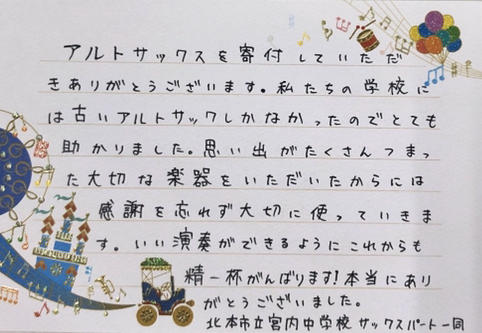 アルトサックスを寄付していただ
きありがとうございます。私たちの学校に
は古いアルトサックしかなかったのでとても
助かりました。思い出がたくさんつまっ
た大切な楽器をいただいたからには
感謝を忘れず大切に使っていきま
す。いい演奏ができるようにこれからも
精一杯がんばります!本当にあり
がとうございました。
北本市立宮内中学校 サックスパート一同